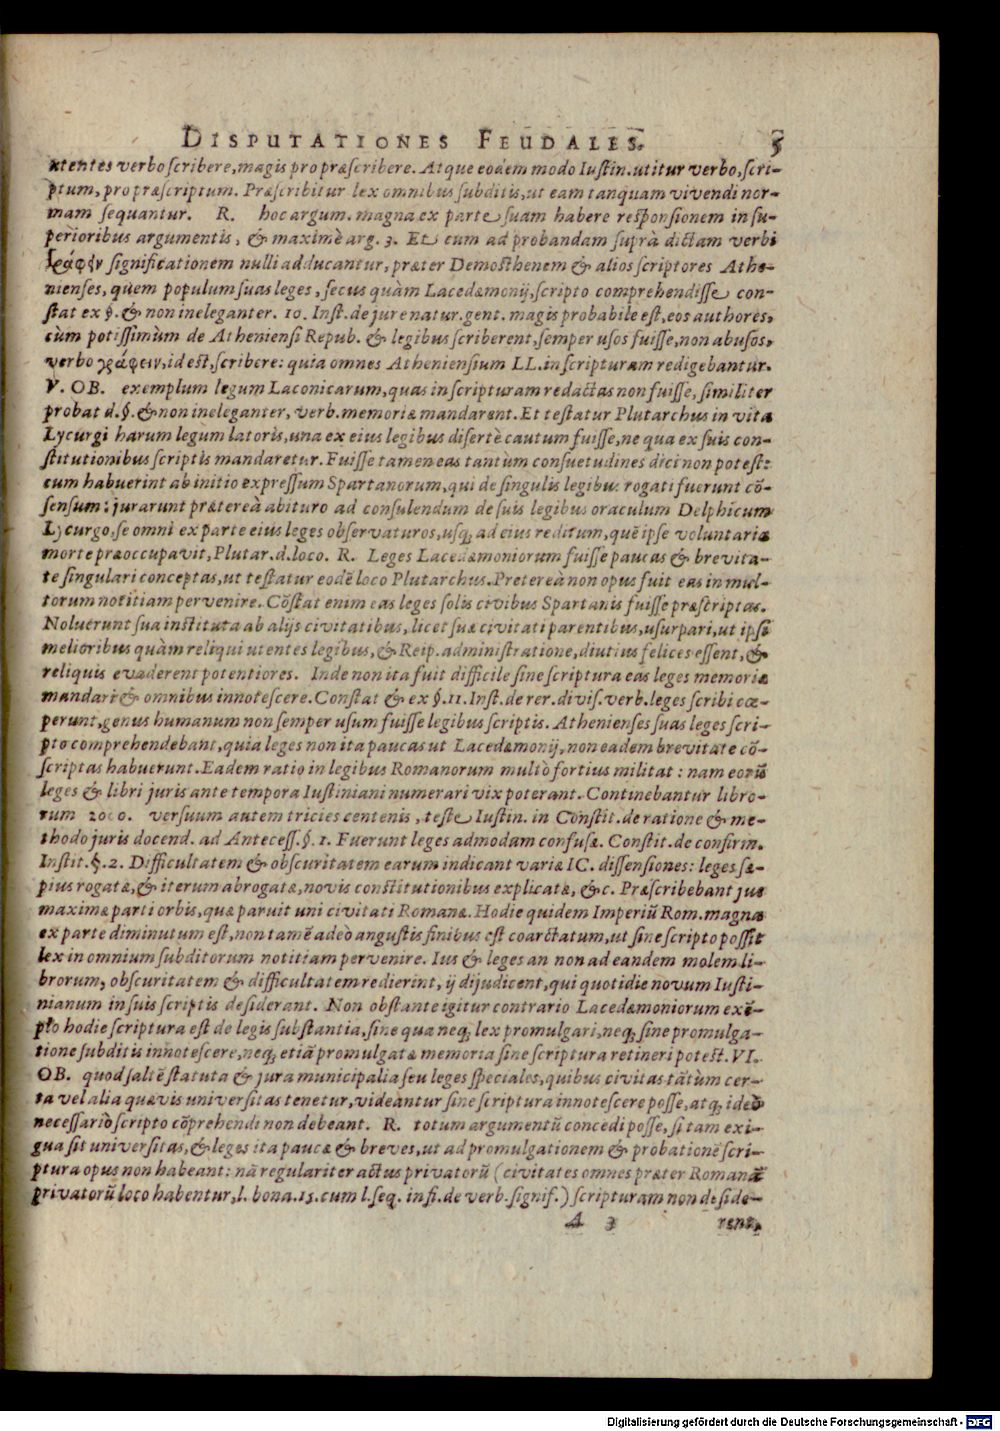 DISPUTATIONES FEUDALES. 5
utentes verbo scribere, magis pro præscribere. Atque eodem modo Iustin. utitur verbo, scri-
ptum, pro præscriptum. Præscribitur lex omnibus subditis, ut eam tanquam vivendi nor-
mam sequantur. R. hoc argum. magna ex parte suam habere responsionem in su-
perioribus argumentis, & maximè arg. 3. Et cum ad probandam suprà dictam verbi
γράφειν significationem nulli adducantur, præter Demosthenem & alios scriptores Athe-
nienses, quem populum suas leges, secus quàm Lacedæmonij, scripto comprehendisse con-
stat ex §. & non ineleganter. 10. Inst. de jure natur. gent. magis probabile est, eos authores,
cùm potissimùm de Atheniensi Repub. & legibus scriberent, semper usos fuisse, non abusos,
verbo γράφειν, id est, scribere: quia omnes Atheniensium LL. in scripturam redigebantur.
V. OB. exemplum legum Laconicarum, quas in scripturam redactas non fuisse, similiter
probat d. §. & non ineleganter, verb. memoriæ mandarent. Et testatur Plutarchus in vita
Lycurgi harum legum latoris, una ex eius legibus disertè cautum fuisse, ne qua ex suis con-
stitutionibus scriptis mandaretur. Fuisse tamen eas tantùm consuetudines dici non potest:
cum habuerint ab initio expressum Spartanorum, qui de singulis legibus rogati fuerunt cō-
sensum: jurarunt prætereà abituro ad consulendum de suis legibus oraculum Delphicum
Lycurgo, se omni ex parte eius leges observaturos, usq; ad eius reditum, quē ipse voluntaria
morte præoccupavit, Plutar. d. loco. R. Leges Lacedæmoniorum fuisse paucas & brevita-
te singulari conceptas, ut testatur eodē loco Plutarchus. Pretereà non opus fuit eas in mul-
torum notitiam pervenire. Cōstat enim eas leges solis civibus Spartanis fuisse præscriptas.
Noluerunt sua instituta ab alijs civitatibus, licet suæ civitati parentibus, usurpari, ut ipsi
melioribus quàm reliqui utentes legibus, & Reip. administratione, diutius felices essent, &
reliquis evaderent potentiores. Inde non ita fuit difficile sine scriptura eas leges memoria
mandari & omnibus innotescere. Constat & ex §. 11. Inst. de rer. divis. verb. leges scribi cœ-
perunt, genus humanum non semper usum fuisse legibus scriptis. Athenienses suas leges scri-
pto comprehendebant, quia leges non ita paucas ut Lacedæmonij, non eadem brevitate cō-
scriptas habuerunt. Eadem ratio in legibus Romanorum multò fortius militat: nam eorū
leges & libri juris ante tempora Iustiniani numerari vix poterant. Continebantur libro-
rum 2000. versuum autem tricies centenis, teste Iustin. in Constit. de ratione & me-
thodo juris docend. ad Antecess. §. 1. Fuerunt leges admodam confusæ. Constit. de confirm.
Instit. §. 2. Difficultatem & obscuritatem earum indicant variæ IC. dissensiones: leges sæ-
pius rogatæ, & iterum abrogatæ, novis constitutionibus explicatæ, &c. Præscribebant jus
maximæ parti orbis, quæ paruit uni civitati Romanæ. Hodie quidem Imperiū Rom. magna
ex parte diminutum est, non tamē adeò angustis finibus est coarctatum, ut sine scripto possit
lex in omnium subditorum notitiam pervenire. Ius & leges an non ad eandem molem li-
brorum, obscuritatem & difficultatem redierint, ij dijudicent, qui quotidie novum Iusti-
nianum in suis scriptis desiderant. Non obstante igitur contrario Lacedæmoniorum exē-
plo hodie scriptura est de legis substantia, sine qua neq; lex promulgari, neq; sine promulga-
tione subditis innotescere, neq; etiā promulgatæ memoria sine scriptura retineri potest. VI.
OB. quod saltē statuta & jura municipalia seu leges speciales, quibus civitas tātùm cer-
ta vel alia quævis universitas tenetur, videantur sine scriptura innotescere posse, atq; ideò
necessariò scripto cōprehendi non debeant. R. totum argumentū concedi posse, si tam exi-
gua sit universitas, & leges ita paucæ & breves, ut ad promulgationem & probationē scri-
ptura opus non habeant: nā regulariter actus privatorū (civitates omnes præter Romanā
privatorū loco habentur, l. bona. 15. cum l. seq. in fi. de verb. signif.) scripturam non deside-
A 3 rent,
Digitalisierung gefördert durch die Deutsche Forschungsgemeinschaft - DFG